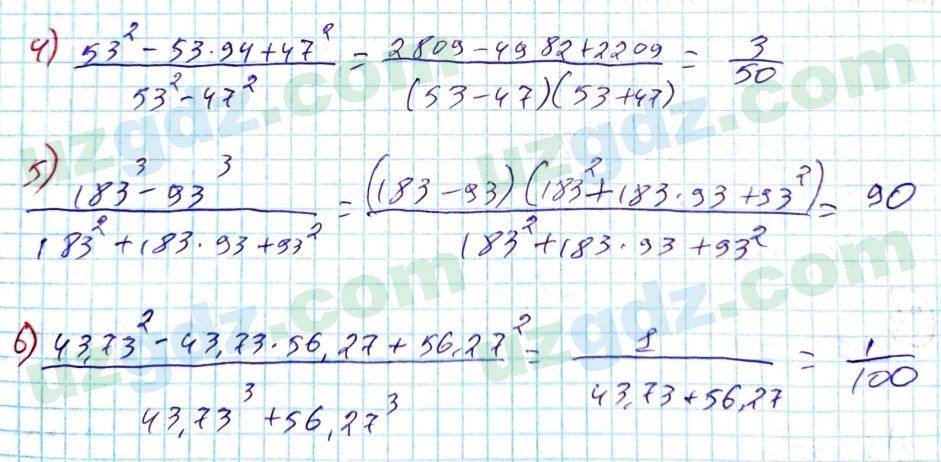 4) (53² - 53·94 + 47²) / (53² - 47²) = (2809 - 4982 + 2209) / ((53 - 47)(53 + 47)) = 3/50
5) (183³ - 93³) / (183² + 183·93 + 93²) = ((183 - 93)(183² + 183·93 + 93²)) / (183² + 183·93 + 93²) = 90
6) (43,73² - 43,73·56,27 + 56,27²) / (43,73³ + 56,27³) = 1 / (43,73 + 56,27) = 1/100
uzgdz.com
uzgdz.com
uzgdz.com
uzgdz.com